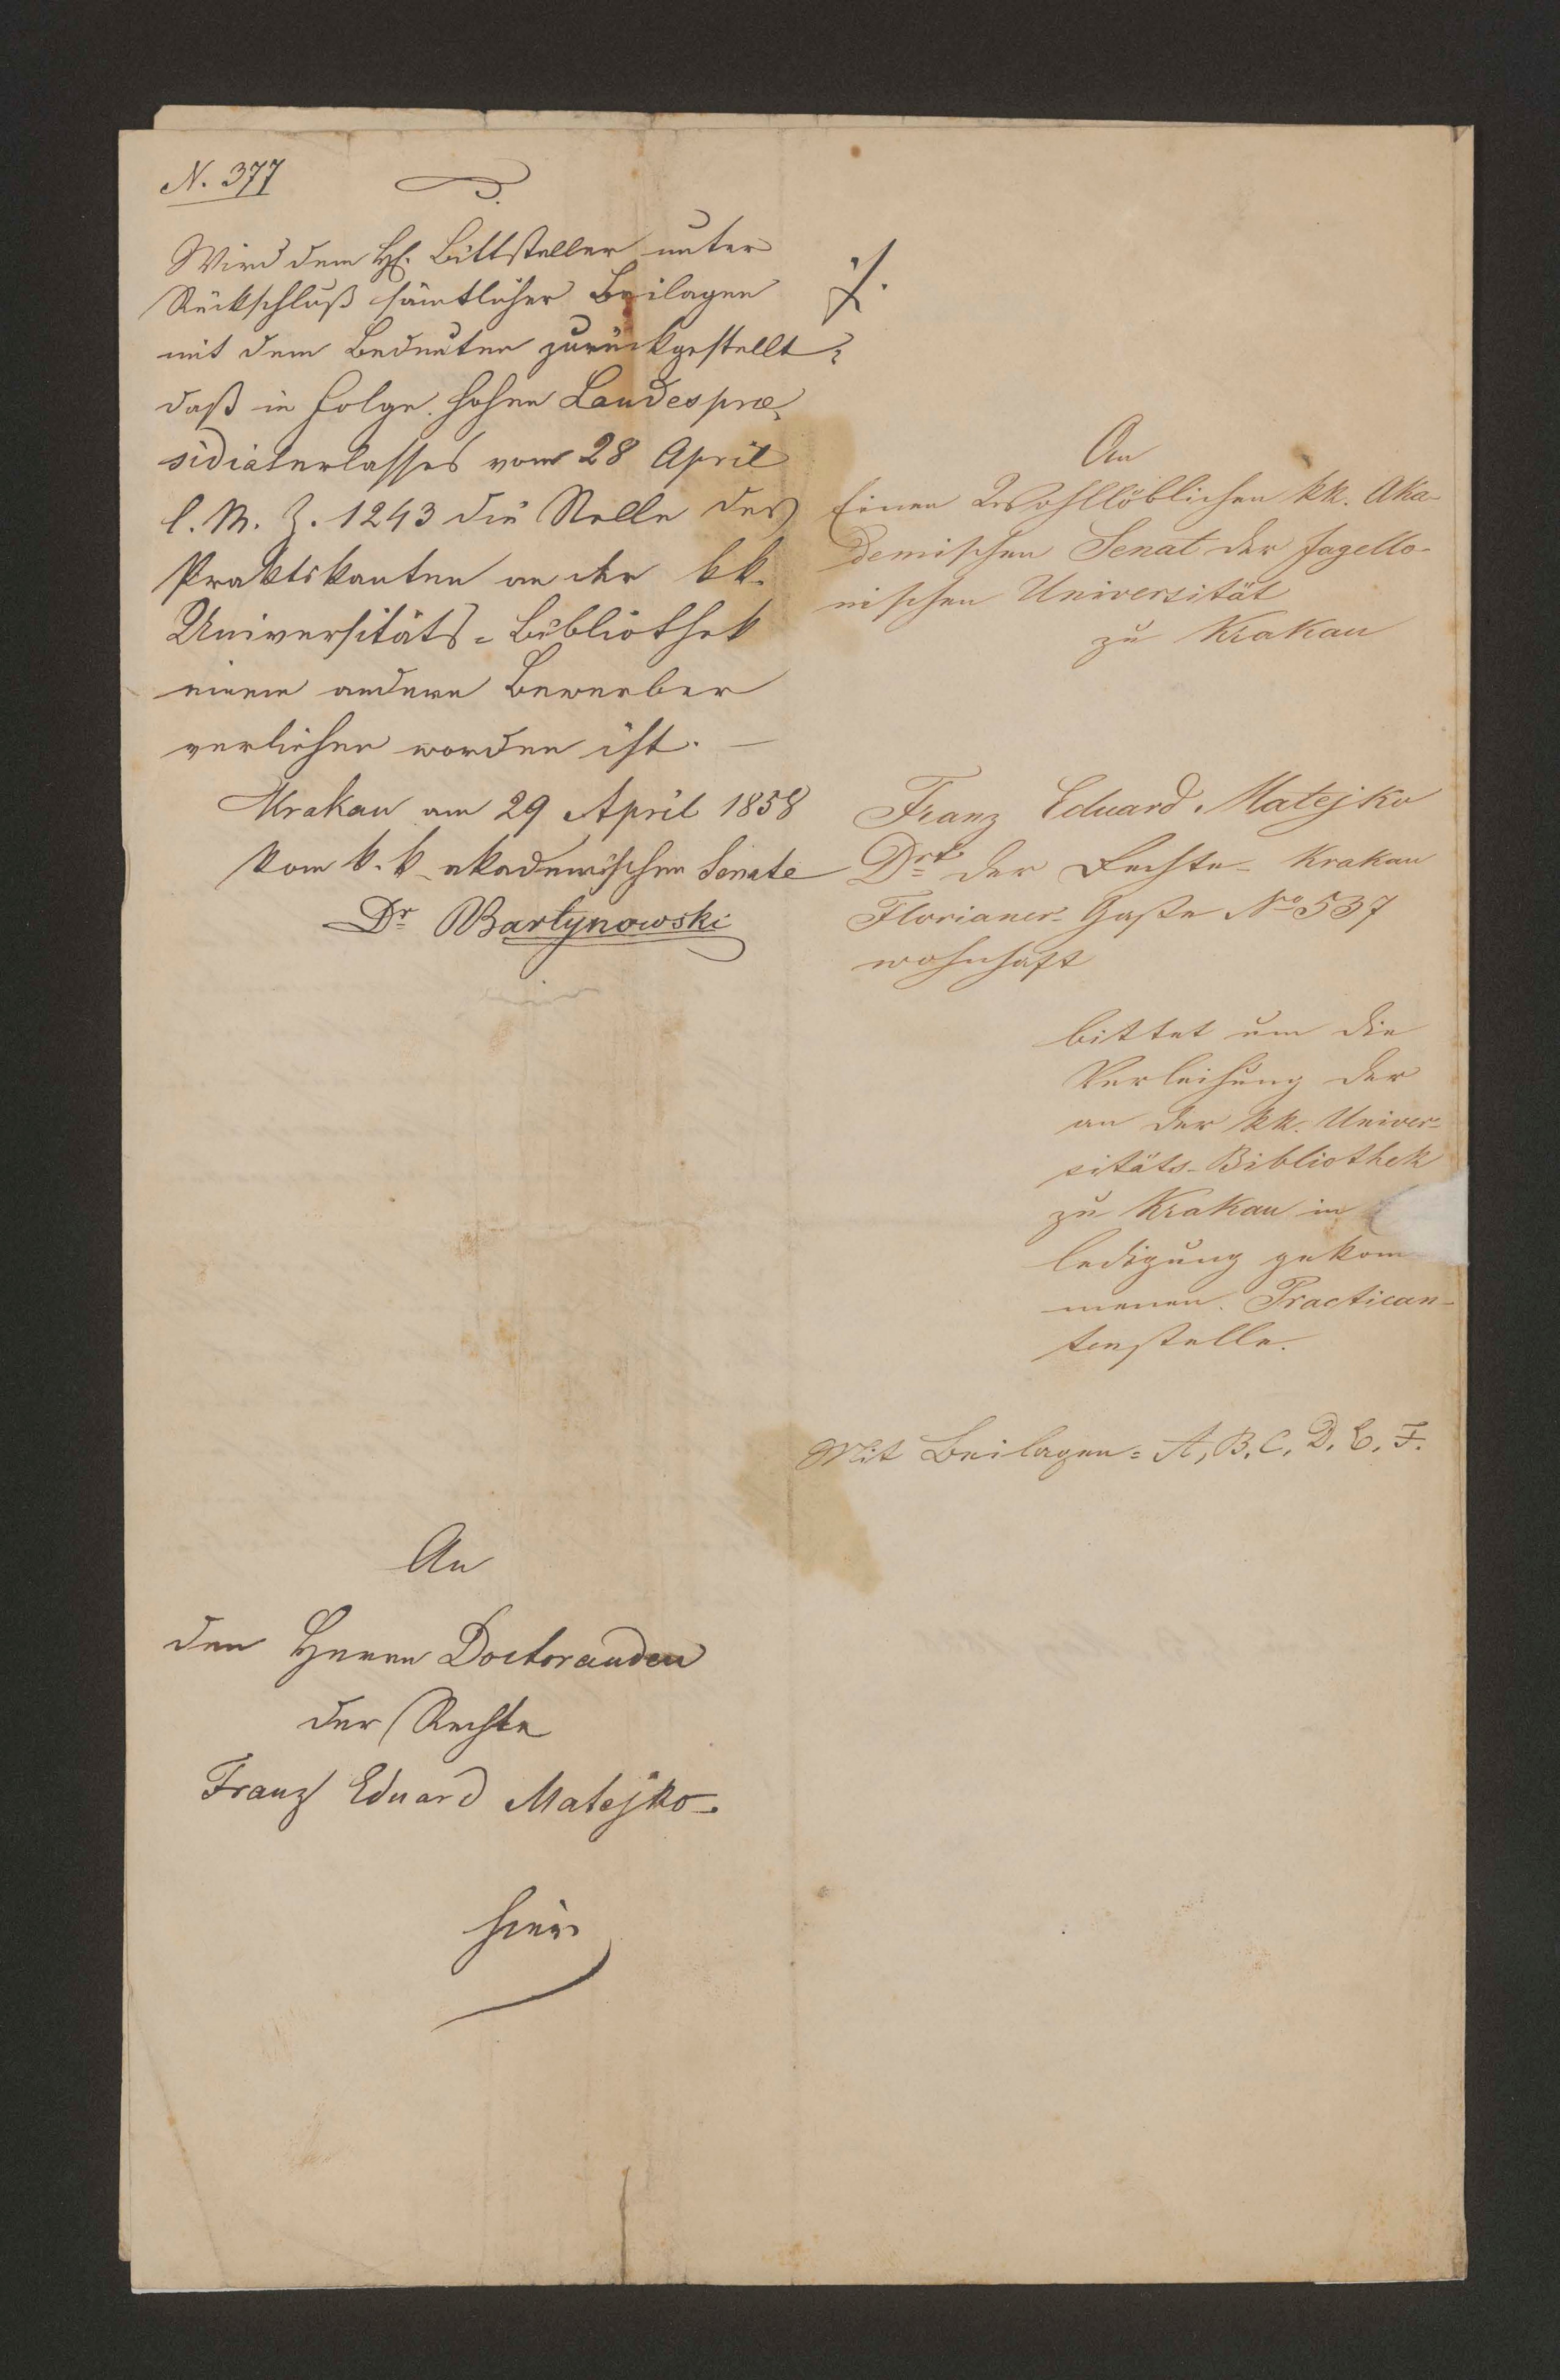 N. 377
Wird dem H. Bittsteller unter
Rückschluß sämtlicher Beilagen
mit dem Bedeuten zurückgestellt,
daß in Folge hohen Landesprae-
sidialerlasses vom 28 April
l. M. Z. 1243 die Stelle des
Praktikanten an der kk.
Universitäts-Bibliothek
einem andern Bewerber
verliehen worden ist. —
Krakau am 29 April 1858
Vom k. k. akademischen Senate
Dr Bartynowski
An
den Herrn Doctoranden
der Rechte
Franz Eduard Matejko.
hier
./.
An
Einen Wohllöblichen kk. Aka-
demischen Senat der Jagello-
nischen Universität
zu Krakau
Franz Eduard Matejko
Drd der Rechte Krakau
Florianer-Gaße No 537
wohnhaft
bittet um die
Verleihung der
an der kk. Univer-
sitäts-Bibliothek
zu Krakau in
ledigung gekom-
menen Practican-
tenstelle.
Mit Beilagen: A, B, C, D, E, F.